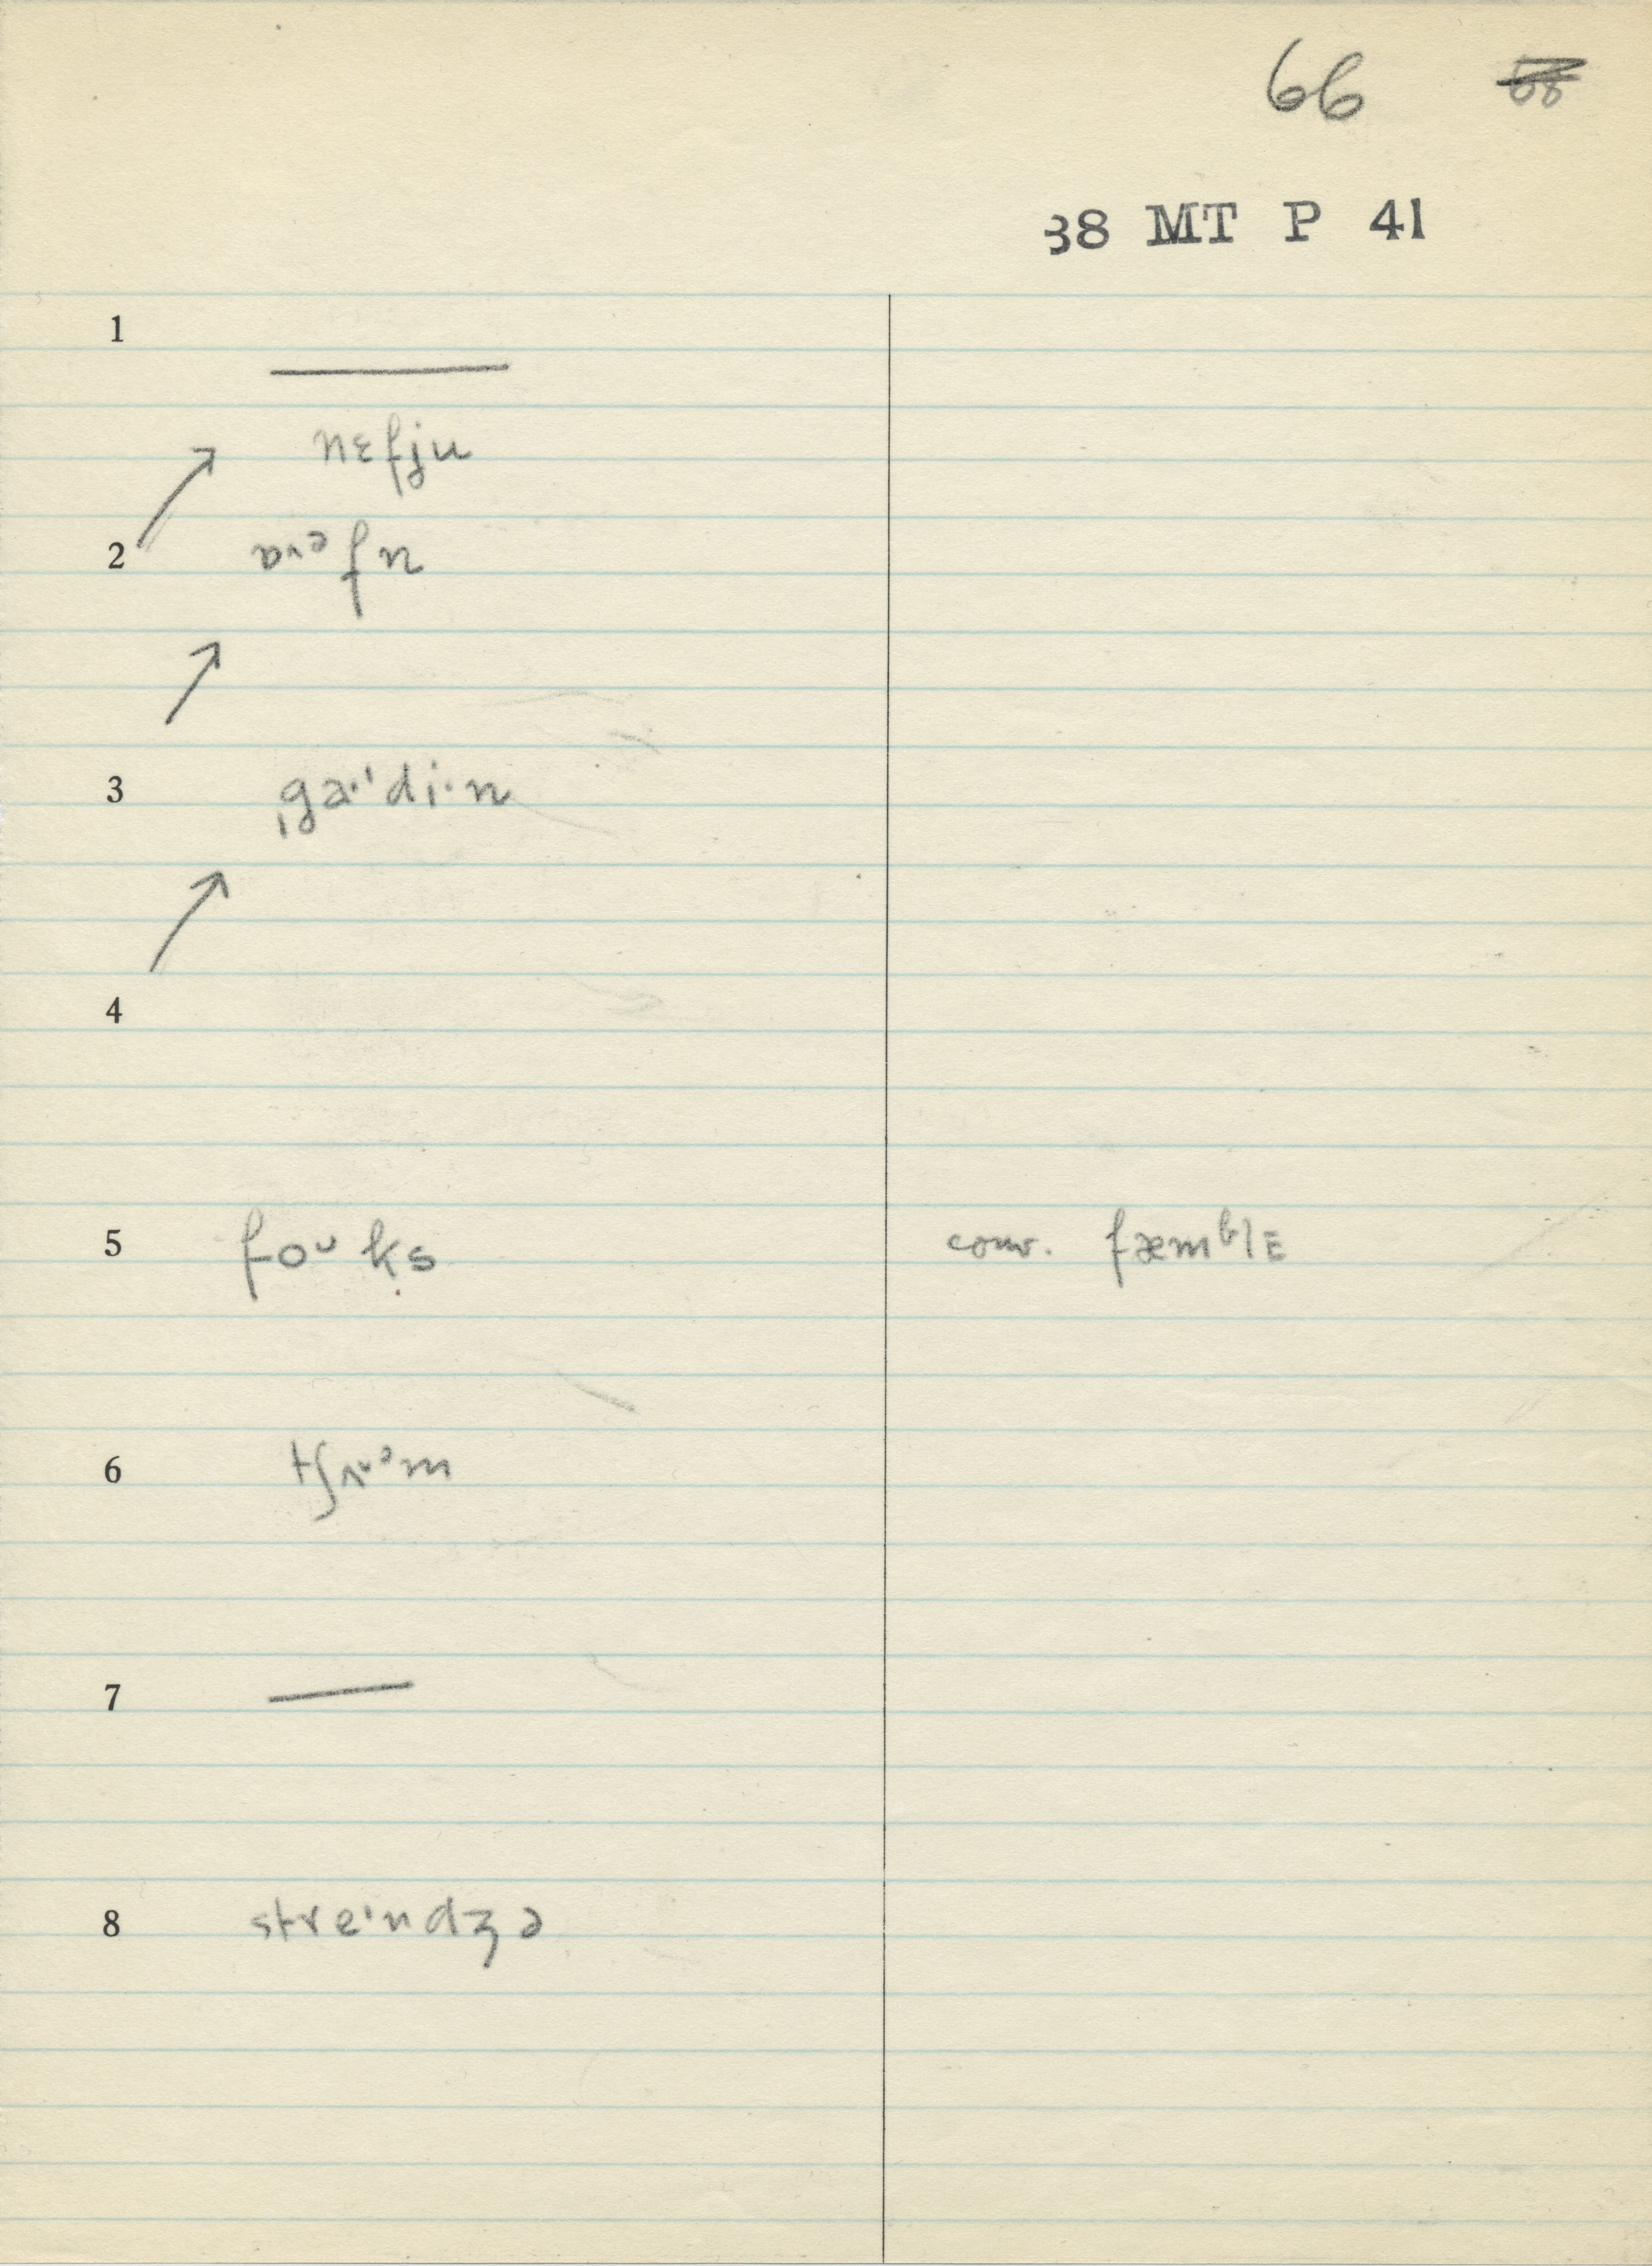 66 ~~68~~
38 MT P 41
1
nɛfju
2 ɒᵛᵊfn
3 ˌgaˑˈdiˑn
4
5 foᵘks conv. fæmᵇlɛ
6
7
8 streˈndʒə